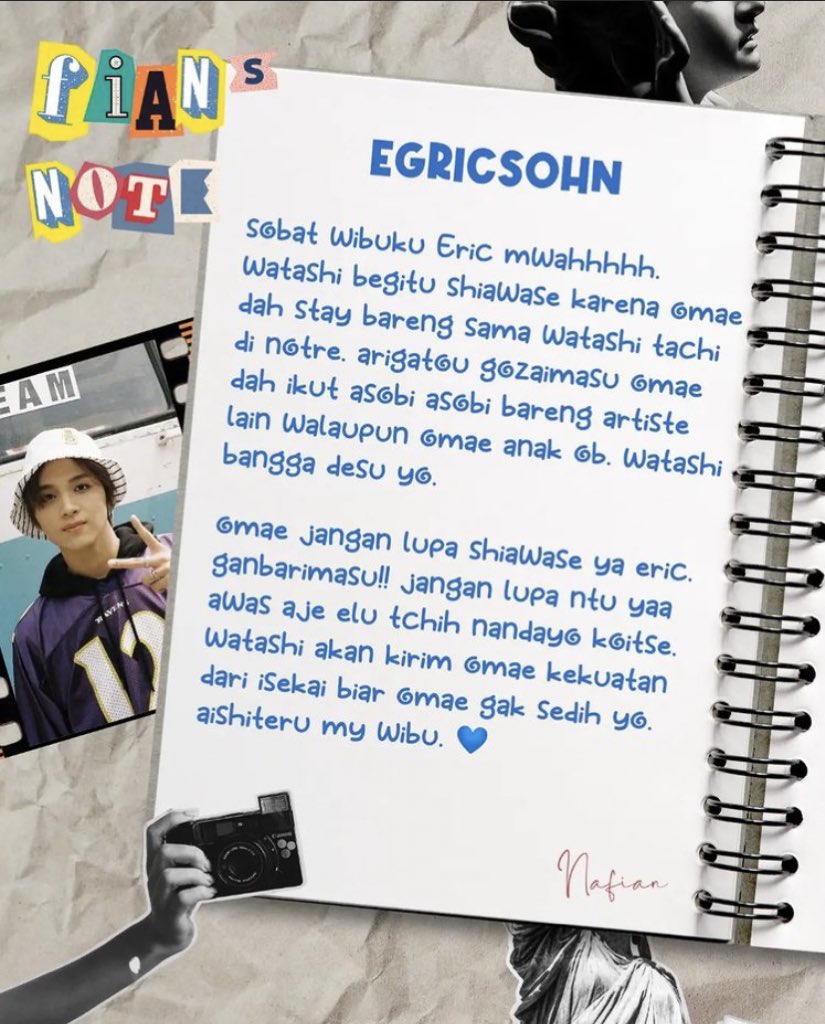 fian's
NOTE
EGRICSOHN
Sobat Wibuku Eric mwahhhhh.
Watashi begitu shiawase karena omae
dah stay bareng sama watashi tachi
di notre. arigatou gozaimasu omae
dah ikut asobi asobi bareng artiste
lain walaupun omae anak ob. Watashi
bangga desu yo.
Omae jangan lupa shiawase ya eric.
ganbarimasu!! jangan lupa ntu yaa
awas aje elu tchih nandayo koitse.
Watashi akan kirim omae kekuatan
dari isekai biar omae gak sedih yo.
aishiteru my wibu. 💙
EAM
RAVENS
1
Canon
Nafian